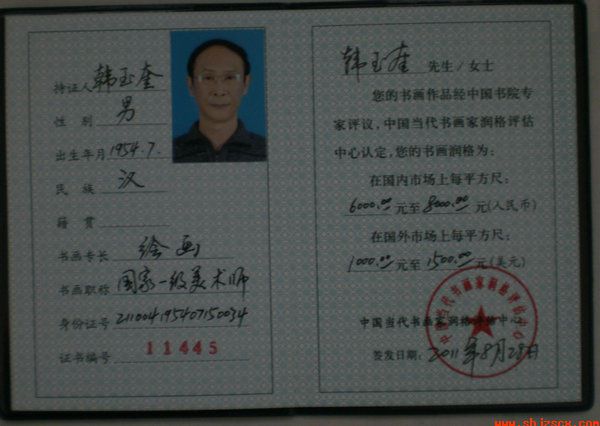 持证人 韩玉奎
性 别 男
出生年月 1954.7.
民 族 汉
籍 贯
书画专长 绘画
书画职称 国家一级美术师
身份证号 211004195407150034
证书编号 11445
韩玉奎 先生/女士
您的书画作品经中国书院专
家评议,中国当代书画家润格评估
中心认定,您的书画润格为:
在国内市场上每平方尺:
6000.00 元至 8000.00 元(人民币)
在国外市场上每平方尺:
1000.00 元至 1500.00 元(美元)
中国当代书画家润格评估中心
中国当代书画家润格评估中心
签发日期: 2011年8月28日
www.shjzscx.com